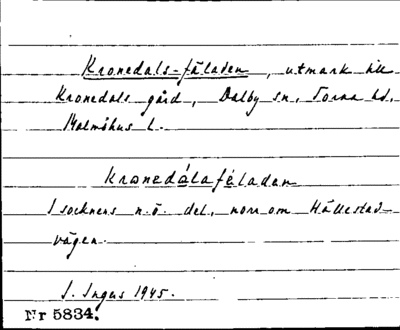 Kronedals-fäladen, utmark till
Kronedals gård, Dalby sn, Torna hd,
Malmöhus l.
kronedálafäladen
I socknens n.ö. del, norr om Hällestad-
vägen.
J. Ingers 1945.
Nr 5834.